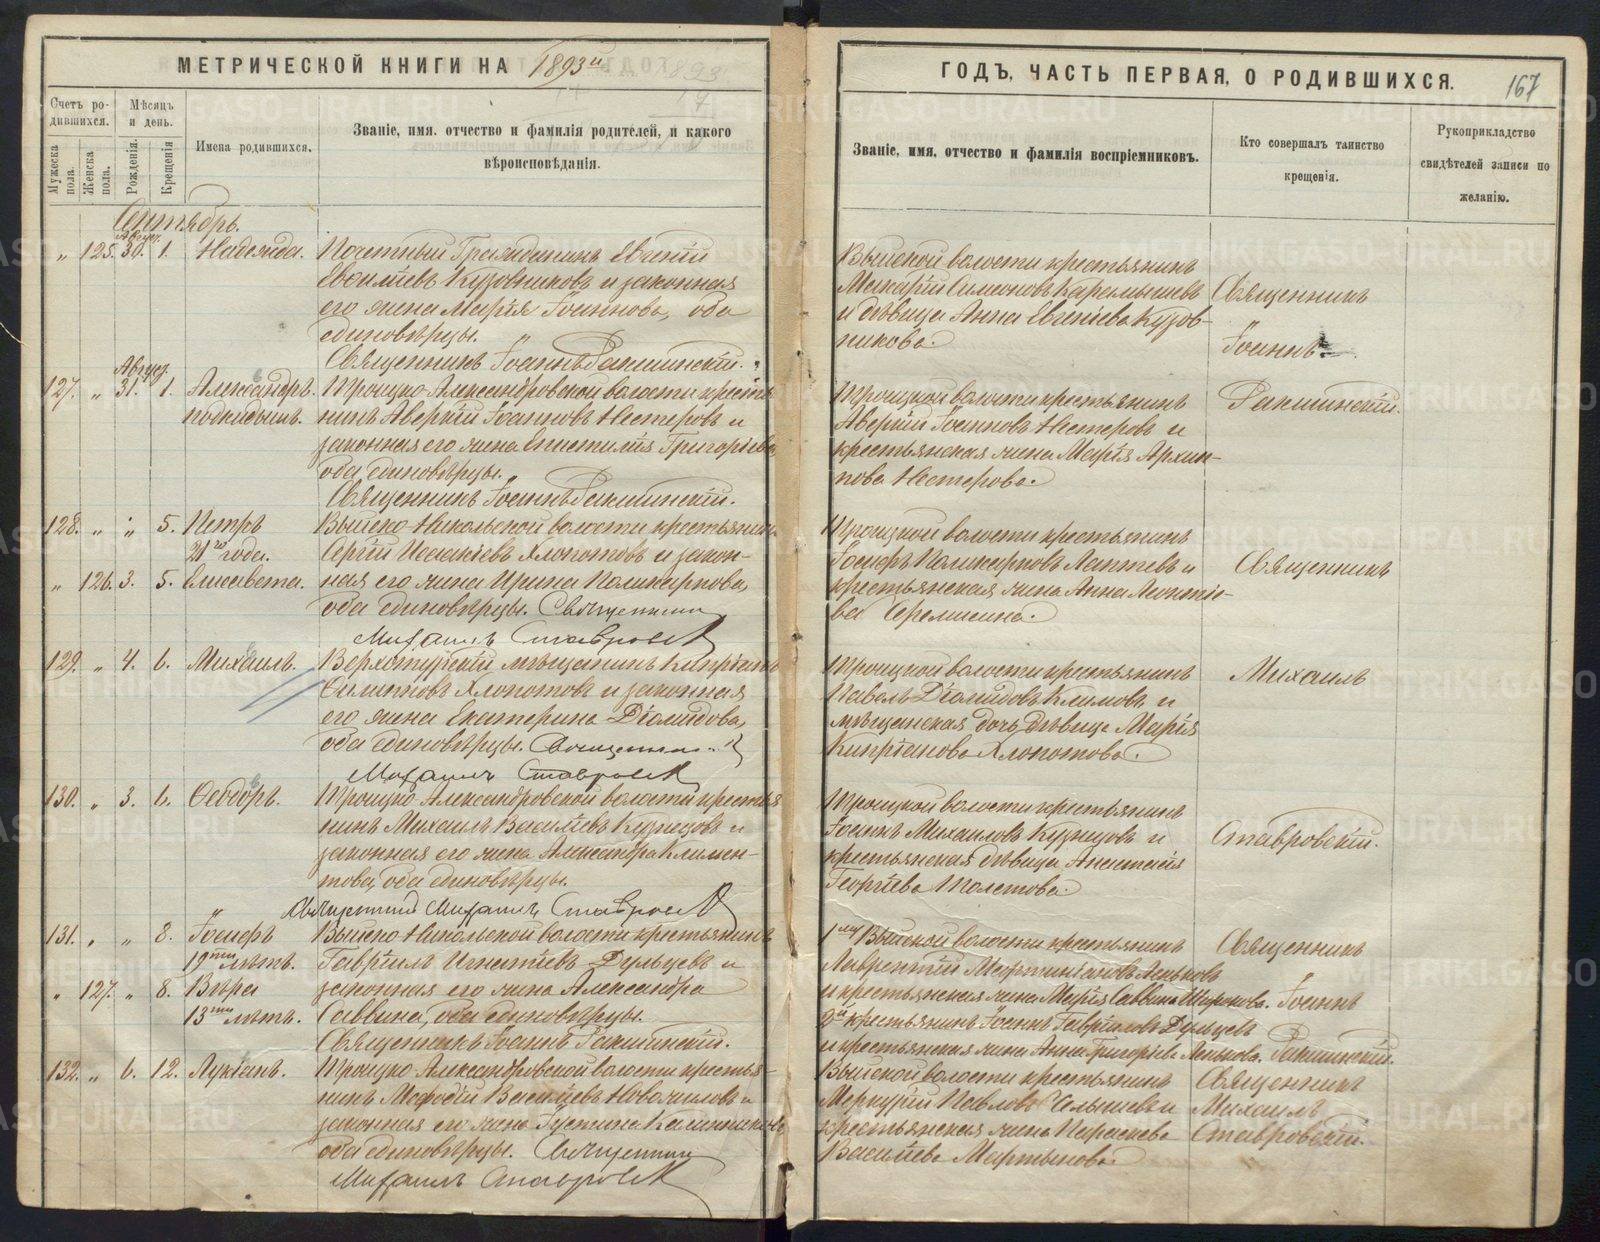 МЕТРИЧЕСКОЙ КНИГИ НА 1893й
Счетъ ро-
дившихся.
Мѣсяцъ
и день.
Мужеска
пола.
Женска
пола.
Рожденія.
Крещенія
Имена родившихся.
Званіе, имя, отчество и фамилія родителей, и какого
вѣроисповѣданія.
Сентябрь.
Август.
„ 125. 30. 1. Надежда. Почетный Гражданинъ Евгеній
Кузовниковъ и законная
его жена Марія Іоаннова, оба
единовѣрцы.
Священникъ Іоаннъ Ракшинскій.
Август.
127. „ 31. 1. Александръ. Троицко-Александровской волости крестья-
подкидышъ. нинъ Аверкій Іоанновъ Нестеровъ и
законная его жена Епистилія Григоріева
оба единовѣрцы.
Священникъ Іоаннъ Ракшинскій.
128. „ „ 5. Петръ Выйско-Никольской волости крестьянинъ
21го года. Сергій Исаакіевъ Хлопотовъ и закон-
„ 126. 3. 5. Елисавета. ная его жена Ирина Поликарпова,
оба единовѣрцы. Священникъ
Михаилъ Ставровскій
129. „ 4. 6. Михаилъ. Верхотурскій мѣщанинъ Кипріанъ
Филипповъ Хлопотовъ и законная
его жена Екатерина Діомидова,
оба единовѣрцы. Священникъ
Михаилъ Ставровскій
130. „ 3. 6. Ѳеодоръ. Троицко-Александровской волости крестья
нинъ Михаилъ Васильевъ Кузнецовъ и
законная его жена Александра Климен-
това, оба единовѣрцы.
Священникъ Михаилъ Ставровскій
131. „ „ 8. Іосифъ Выйско-Никольской волости крестьянинъ
19ти лѣтъ. Гавріилъ Игнатіевъ Дульцевъ и
„ 127. „ 8. Вѣра законная его жена Александра
13ти лѣтъ. Саввина, оба единовѣрцы.
Священникъ Іоаннъ Ракшинскій.
132. „ 6. 12. Лукіанъ. Троицко-Александровской волости крестья-
нинъ Меѳодій Васильевъ Новочиловъ и
законная его жена Іустина Калинникова
оба единовѣрцы. Священникъ
Михаилъ Ставровскій
ГОДЪ, ЧАСТЬ ПЕРВАЯ, О РОДИВШИХСЯ.
167
Званіе, имя, отчество и фамилія воспріемниковъ.
Кто совершалъ таинство
крещенія.
Рукоприкладство
свидѣтелей записи по
желанію.
Выйской волости крестьянинъ
Макарій Симеоновъ Карамышевъ Священникъ
и дѣвица Анна Евгеніева Кузов-
никова. Іоаннъ
Троицкой волости крестьянинъ Ракшинскій.
Аверкій Іоанновъ Нестеровъ и
крестьянская жена Марія Архип-
пова Нестерова.
Троицкой волости крестьянинъ
Іосифъ Поликарповъ Лаптевъ и Священникъ
крестьянская жена Анна Леонтіе-
ва Черемисина.
Троицкой волости крестьянинъ Михаилъ
Павелъ Діомидовъ Климовъ и
мѣщанская дочь дѣвица Марія
Кипріанова Хлопотова.
Троицкой волости крестьянинъ
Іоаннъ Михаиловъ Кузнецовъ и Ставровскій.
крестьянская дѣвица Анастасія
Георгіева Толстова.
1хъ Выйской волости крестьянинъ Священникъ
Лаврентій Мартиніановъ Леньковъ
и крестьянская жена Марія Саввина Широкова. Іоаннъ
2й крестьянинъ Іоаннъ Гавріиловъ Дульцевъ
и крестьянская жена Анна Григоріева Ленькова. Ракшинскій.
Выйской волости крестьянинъ Священникъ
Меркурій Павловъ и Михаилъ
крестьянская жена Параскева Ставровскій.
Васильева Мартынова.
METRIKI.GASO-URAL.RU